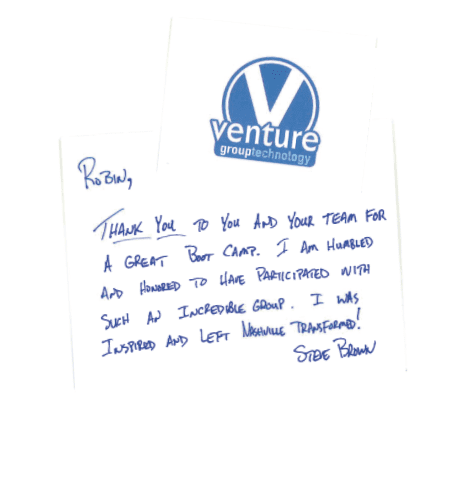 venture
grouptechnology
Robin,
Thank You to You and Your Team for
a great Boot Camp. I am humbled
and honored to have participated with
such an incredible group. I was
inspired and left Nashville transformed!
Steve Brown